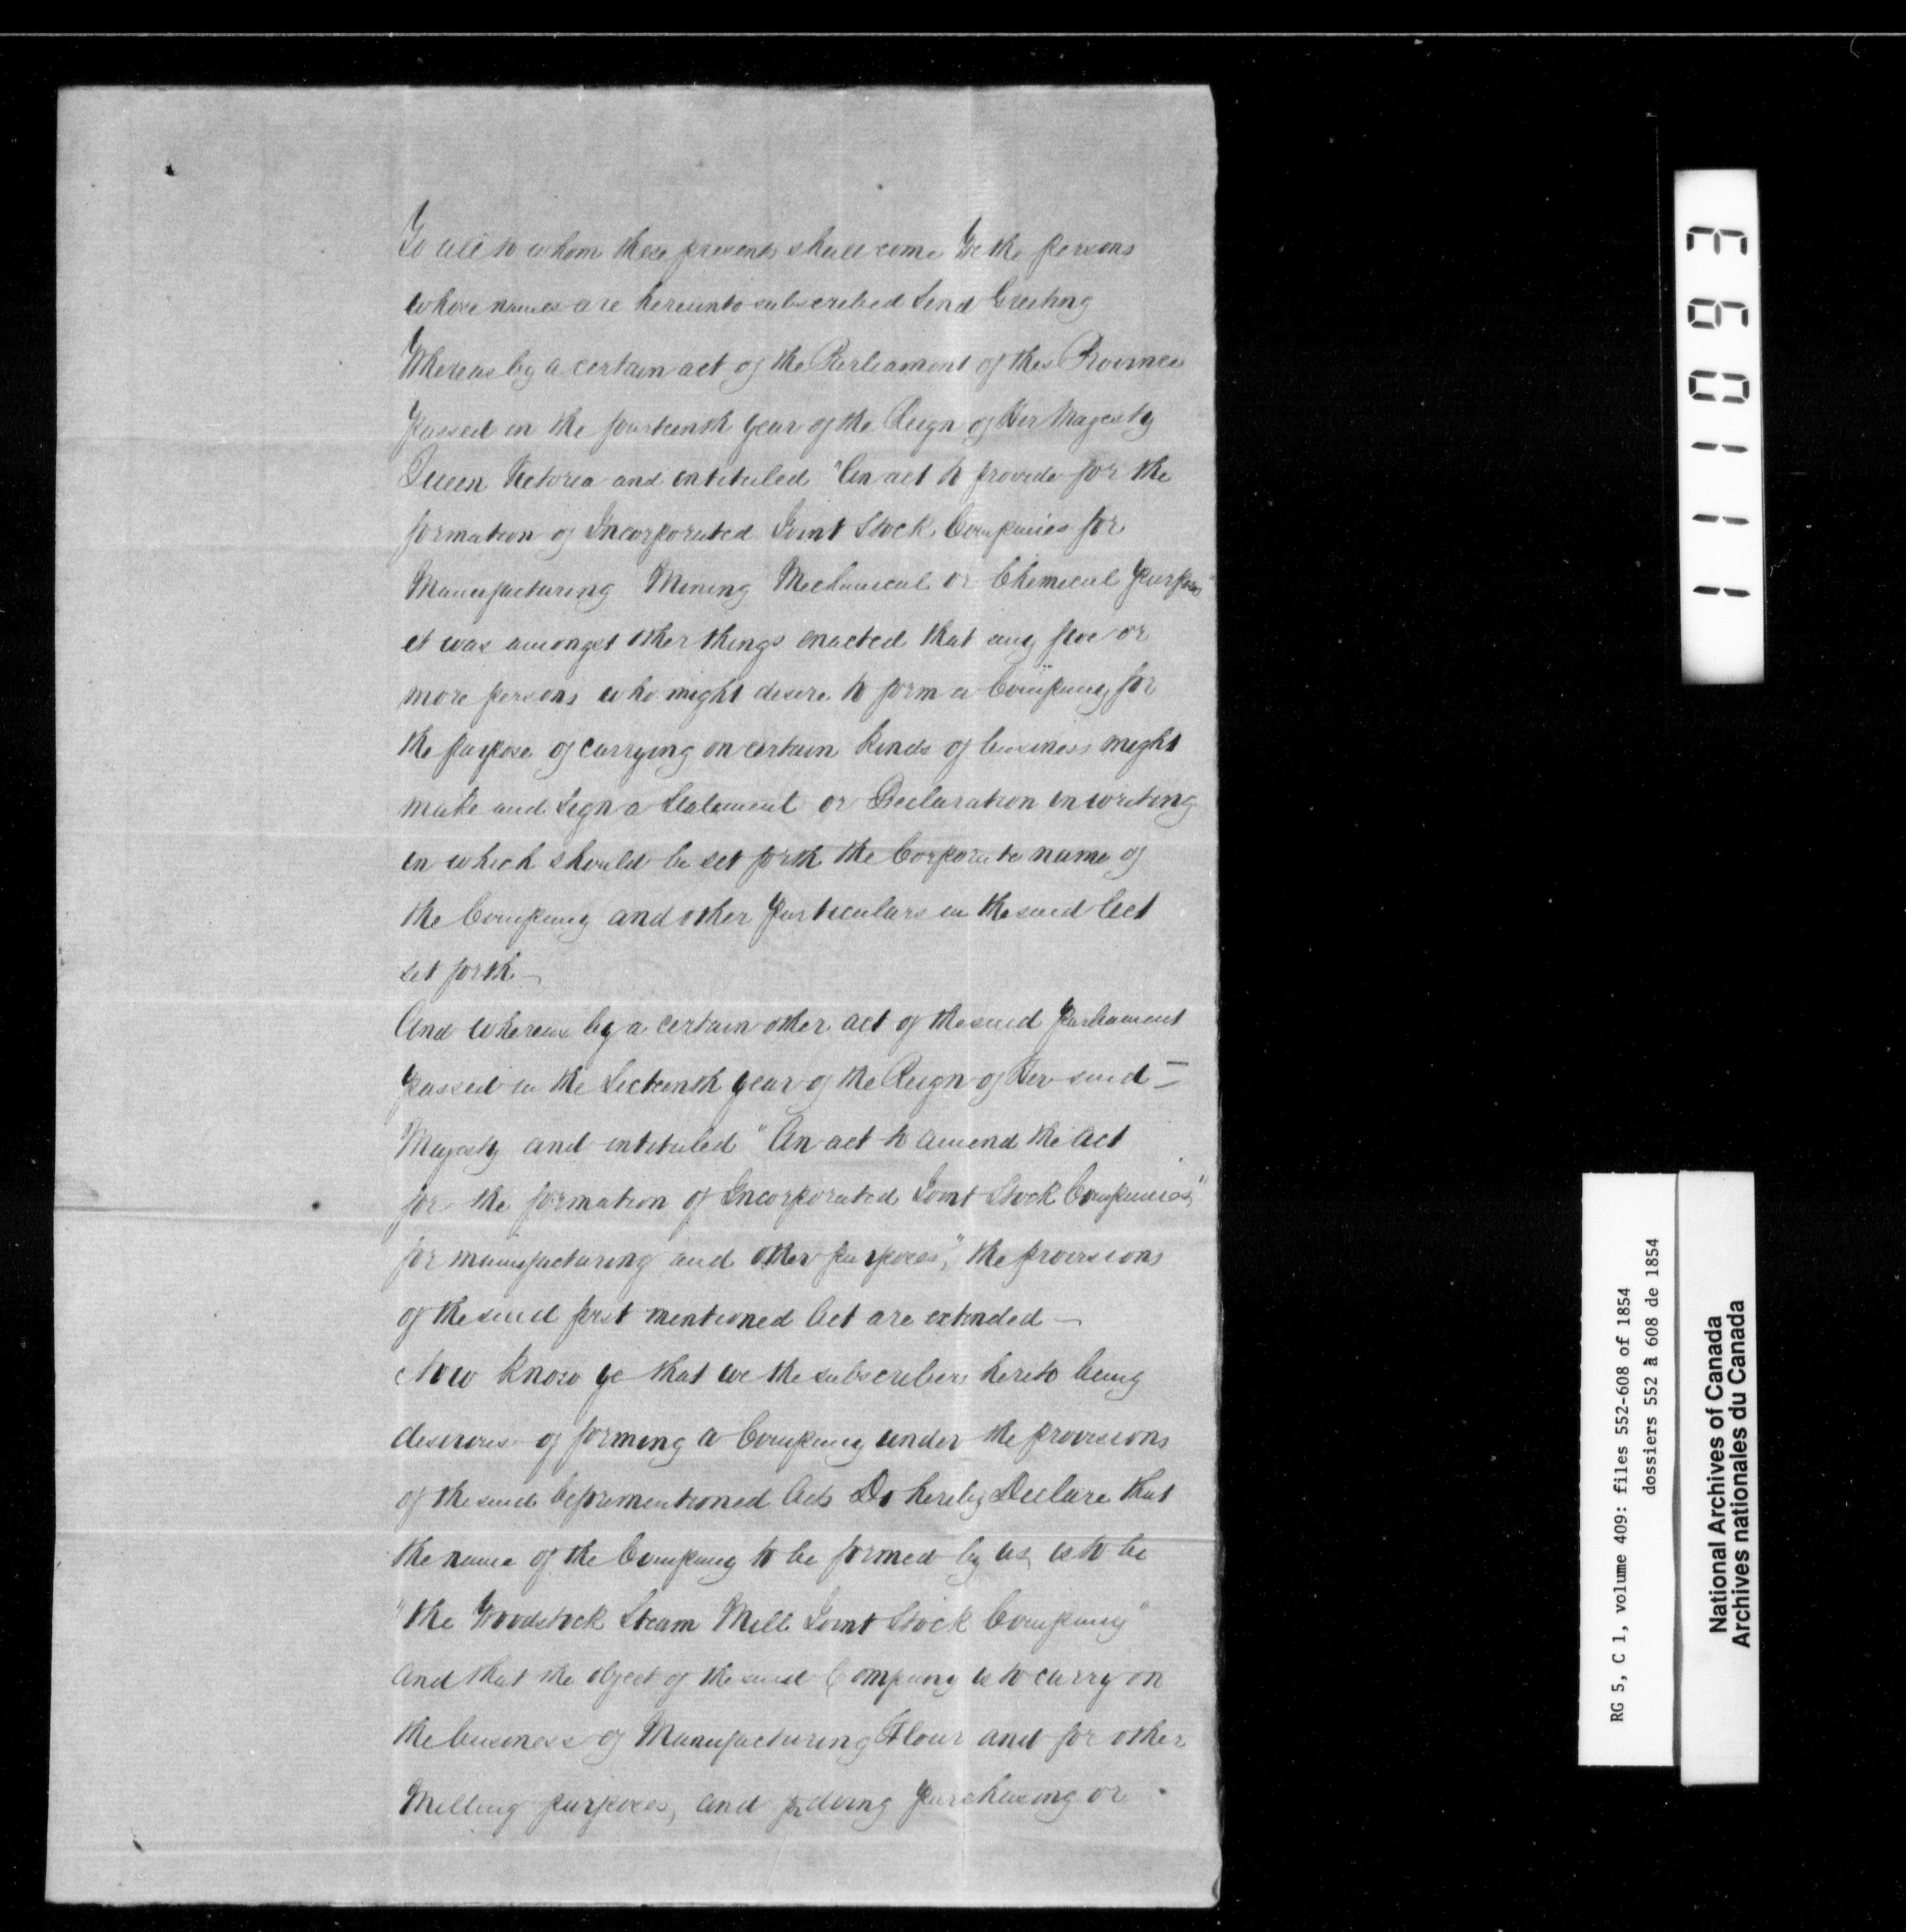 To all to whom these presents shall come We the persons
whose names are hereunto subscribed Send Greeting
Whereas by a certain act of the Parliament of this Province
Passed in the fourteenth year of the Reign of Her Majesty
Queen Victoria and intituled "An act to provide for the
formation of Incorporated Joint Stock Companies for
Manufacturing Mining Mechanical or Chemical Purposes"
it was amongst other things enacted that any five or
more persons who might desire to form a Company for
the purpose of carrying on certain kinds of business might
make and sign a Statement or Declaration in writing
in which should be set forth the Corporate name of
the Company and other Particulars in the said Act
set forth —
And whereas by a certain other act of the said Parliament
passed in the Sixteenth year of the Reign of Her said —
Majesty and intituled "An act to amend the act
for the formation of Incorporated Joint Stock Companies,"
for manufacturing and other purposes," the provisions
of the said first mentioned Act are extended —
Now Know ye that we the subscribers hereto being
desirous of forming a Company under the provisions
of the said beforementioned Acts Do hereby Declare that
the name of the Company to be formed by us, is to be
"the Woodstock Steam Mill Joint Stock Company"
and that the object of the said Company is to carry on
the business of Manufacturing Flour and for other
Milling purposes, and for doing Purchasing or
111093
RG 5, C 1, volume 409: files 552-608 of 1854
dossiers 552 à 608 de 1854
National Archives of Canada
Archives nationales du Canada